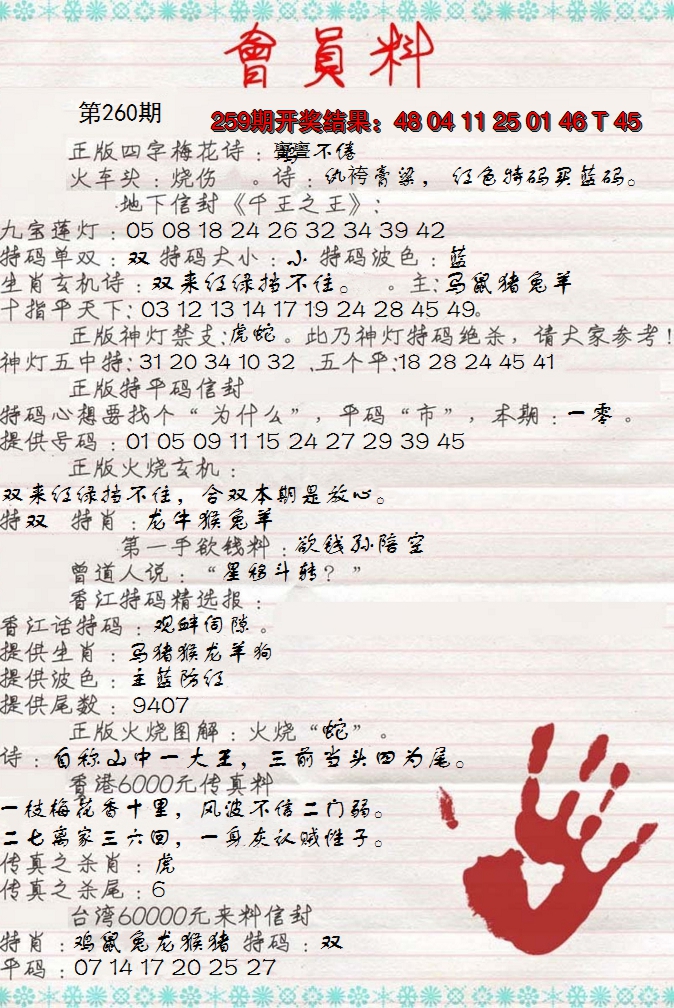 會員料
第260期
259期开奖结果：48 04 11 25 01 46 T 45
正版四字梅花诗：亹亹不倦
火车头：烧伤 。诗：仇袴膏粱，红色特码买蓝码。
地下信封《千王之王》：
九宝莲灯：05 08 18 24 26 32 34 39 42
特码单双：双 特码大小：小 特码波色：蓝
生肖玄机诗：双来红绿挡不住。 。主：马鼠猪兔羊
十指平天下：03 12 13 14 17 19 24 28 45 49。
正版神灯禁支：虎蛇。此乃神灯特码绝杀，请大家参考！
神灯五中特：31 20 34 10 32 、五个平：18 28 24 45 41
正版特平码信封
特码心想要找个“为什么”，平码“市”，本期：一零 。
提供号码：01 05 09 11 15 24 27 29 39 45
正版火烧玄机：
双来红绿挡不住，合双本期是放心。
特双 特肖：龙牛猴兔羊
第一手欲钱料：欲钱孙陪空
曾道人说：“星移斗转？”
香江特码精选报：
香江话特码：观衅伺隙。
提供生肖：马猪猴龙羊狗
提供波色：主蓝防红
提供尾数：9407
正版火烧图解：火烧“蛇”。
诗：自称山中一大王，三前当头四为尾。
香港6000元传真料
一枝梅花香十里，风波不信二门弱。
二七离家三六回，一身灰认贼性子。
传真之杀肖：虎
传真之杀尾：6
台湾60000元来料信封
特肖：鸡鼠兔龙猴猪 特码：双
平码：07 14 17 20 25 27